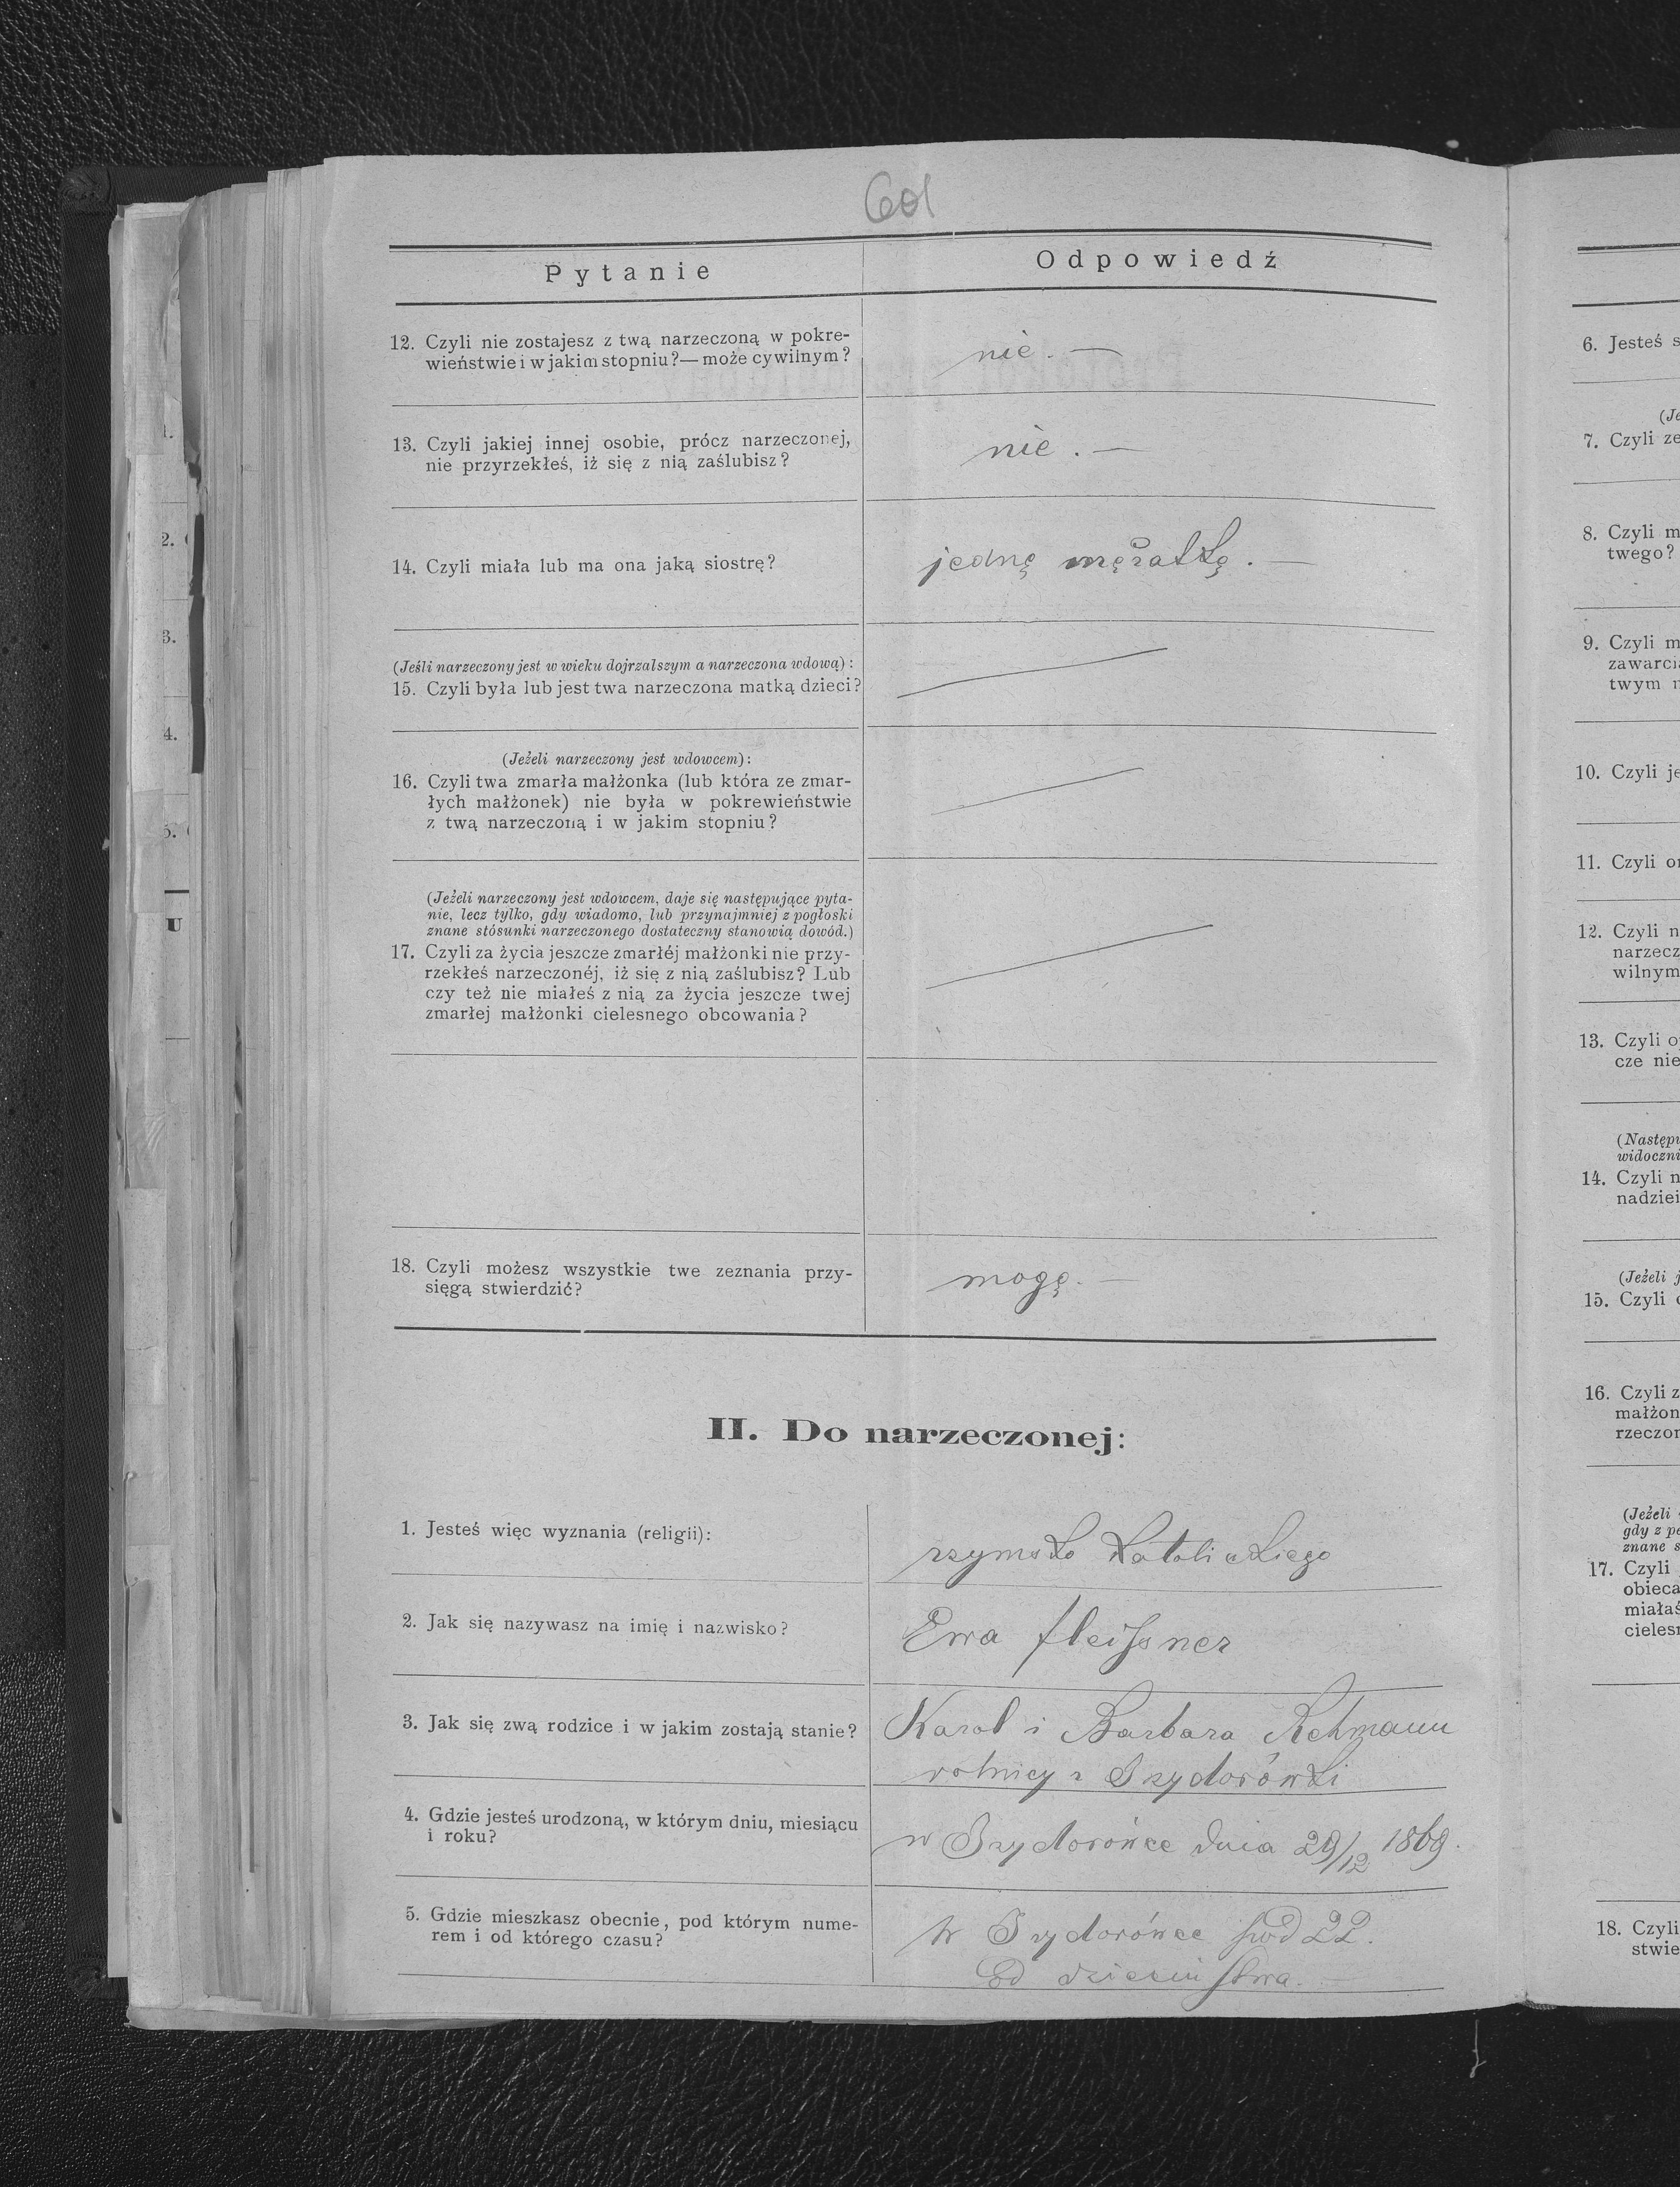 601
Pytanie
Odpowiedź
12. Czyli nie zostajesz z twą narzeczoną w pokre-
wieństwie i w jakim stopniu?— może cywilnym?
nie. —
13. Czyli jakiej innej osobie, prócz narzeczonej,
nie przyrzekłeś, iż się z nią zaślubisz?
nie. —
14. Czyli miała lub ma ona jaką siostrę?
jedną mężatkę. —
(Jeśli narzeczony jest w wieku dojrzalszym a narzeczona wdową):
15. Czyli była lub jest twa narzeczona matką dzieci?
(Jeżeli narzeczony jest wdowcem):
16. Czyli twa zmarła małżonka (lub która ze zmar-
łych małżonek) nie była w pokrewieństwie
z twą narzeczoną i w jakim stopniu?
(Jeżeli narzeczony jest wdowcem, daje się następujące pyta-
nie, lecz tylko, gdy wiadomo, lub przynajmniej z pogłoski
znane stósunki narzeczonego dostateczny stanowią dowód.)
17. Czyli za życia jeszcze zmarłéj małżonki nie przy-
rzekłeś narzeczonéj, iż się z nią zaślubisz? Lub
czy też nie miałeś z nią za życia jeszcze twej
zmarłej małżonki cielesnego obcowania?
18. Czyli możesz wszystkie twe zeznania przy-
sięgą stwierdzić?
mogę. —
II. Do narzeczonej:
1. Jesteś więc wyznania (religii):
rzymsko katolickiego
2. Jak się nazywasz na imię i nazwisko?
Ewa Fleissner
3. Jak się zwą rodzice i w jakim zostają stanie?
Karol i Barbara Rehmann
rolnicy z Szydorówki
4. Gdzie jesteś urodzoną, w którym dniu, miesiącu
i roku?
w Szydorówce dnia 29/12 1869.
5. Gdzie mieszkasz obecnie, pod którym nume-
rem i od którego czasu?
w Szydorówce pod 22.
Od dzieciństwa.
6. Jesteś
7. Czyli
8. Czyli
twego?
9. Czyli
twym
10. Czyli
11. Czyli
12. Czyli
13. Czyli
cze nie
14. Czyli
(Jeżeli
15. Czyli
16. Czyli z
(Jeżeli
gdy z
znane
17. Czyli
18. Czyli